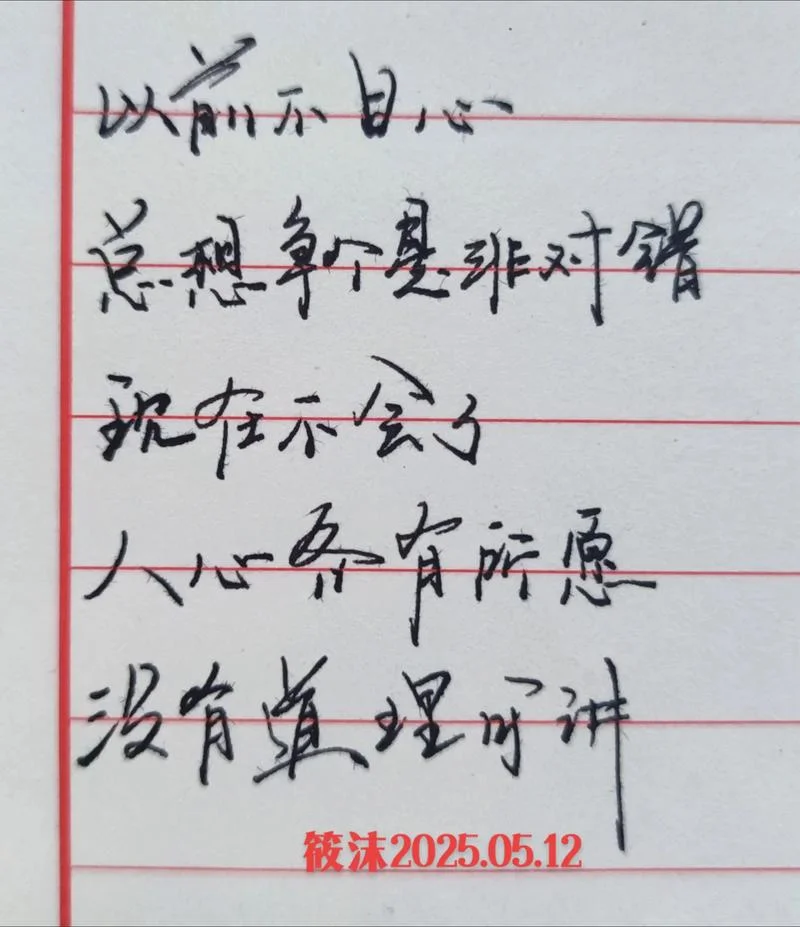 以前不甘心
总想争个是非对错
现在不会了
人心各有所愿
没有道理可讲
筱沫2025.05.12